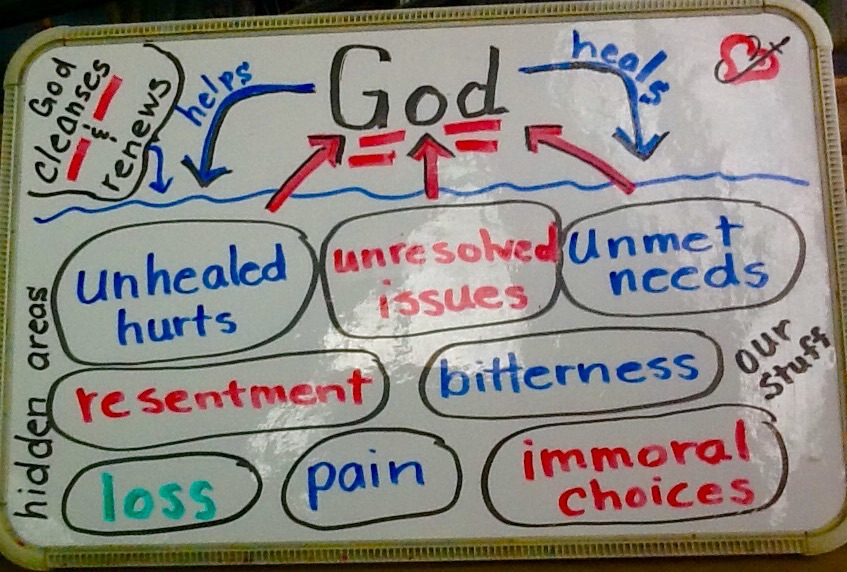 God
cleanses
&
renews
helps
God
heals
hidden areas
unhealed
hurts
unresolved
issues
unmet
needs
resentment
bitterness
our
stuff
loss
pain
immoral
choices